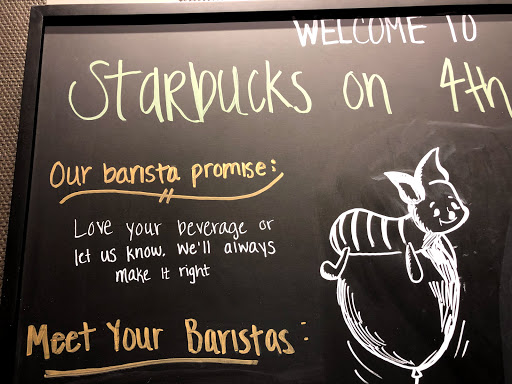 WELCOME TO
Starbucks on 4th
Our barista promise:
Love your beverage or
let us know. we'll always
make it right
Meet Your Baristas: